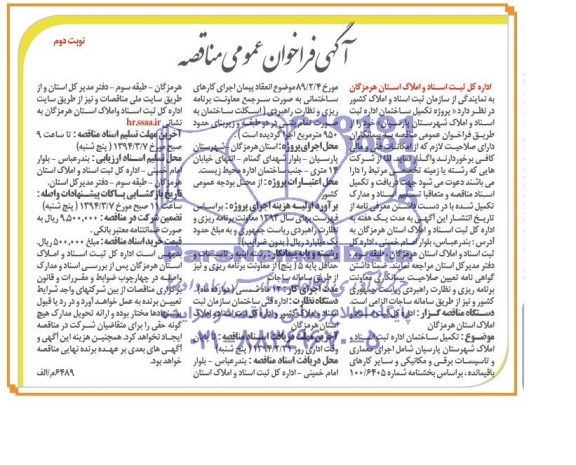 نوبت دوم
آگهی فراخوان عمومی مناقصه
اداره کل ثبت اسناد و املاک استان هرمزگان
به نمایندگی از سازمان ثبت اسناد و املاک کشور
در نظر دارد « پروژه تکمیل ساختمان اداره ثبت
اسناد و املاک شهرستان پارسیان » خود را از
طریق فراخوان عمومی مناقصه به پیمانکاران
دارای صلاحیت لازم که از امکانات فنی و مالی
کافی برخوردارند واگذار نماید. لذا از شرکت
هایی که رشته یا زمینه تخصصی مرتبط را دارا
می باشند دعوت می شود جهت دریافت و تکمیل
اسناد مناقصه و متعاقبا تسلیم اسناد و مدارک
تکمیل شده با در دست داشتن معرفی نامه از
تاریخ انتشار این آگهی به مدت یک هفته به
اداره کل ثبت اسناد و املاک استان هرمزگان به
آدرس : بندرعباس، بلوار امام خمینی ، اداره کل
ثبت اسناد و املاک استان هرمزگان، طبقه سوم،
دفتر مدیرکل استان مراجعه نمایند. ضمنا داشتن
گواهی نامه تعیین صلاحیت پیمانکاری معاونت
برنامه ریزی و نظارت راهبردی ریاست جمهوری
کشور و نیز از طریق سامانه ساجات الزامی است.
دستگاه مناقصه گزار : اداره کل ثبت اسناد و
املاک استان هرمزگان
موضوع : تکمیل ساختمان اداره ثبت اسناد و
املاک شهرستان پارسیان شامل اجرای معماری
و تاسیسات برقی و مکانیکی و سایر کارهای
باقیمانده ، براساس بخشنامه شماره ۱۰۰/۶۴۰۵
مورخ ۸۹/۲/۴ موضوع انعقاد پیمان اجرای کارهای
ساختمانی به صورت سرجمع معاونت برنامه
ریزی و نظارت راهبردی ( اسکلت ساختمان به
صورت تمام بتنی در دو طبقه و زیربنای حدود
۹۵۰ مترمربع اجرا گردیده است ).
محل اجرای پروژه : استان هرمزگان – شهرستان
پارسیان – بلوار شهدای گمنام – انتهای خیابان
۱۴ متری – جنب ساختمان اداره محیط زیست.
محل اعتبارات پروژه : از محل بودجه عمومی
کشور.
برآورد اولیه هزینه اجرای پروژه : براساس
فهرست بهای سال ۱۳۹۳ معاونت برنامه ریزی و
نظارت راهبردی ریاست جمهوری و به مبلغ حدود
یک میلیارد ریال ( بدون ضرایب )
رشته و پایه پیمانکار : رشته ابنیه و تاسیسات و
حداقل پایه ۵ ( پنج ) از معاونت برنامه ریزی و نیز
از طریق سامانه ساجات
مدت اجرای کار : ۱۲ ماه شمسی ( دوازده ماه )
دستگاه نظارت : اداره فنی ساختمان سازمان ثبت
اسناد و املاک کشور و اداره کل ثبت اسناد و املاک
استان هرمزگان
آخرین مهلت دریافت اسناد مناقصه : تا پایان
وقت اداری روز
محل دریافت اسناد مناقصه : بندرعباس – بلوار
امام خمینی – اداره کل ثبت اسناد و املاک استان
هرمزگان – طبقه سوم – دفتر مدیر کل استان و از
طریق سایت ملی مناقصات و نیز از طریق سایت
اداره کل ثبت اسناد و املاک استان هرمزگان به
نشانی hr.ssaa.ir
آخرین مهلت تسلیم اسناد مناقصه : تا ساعت ۹
صبح مورخ ۱۳۹۴/۳/۷ ( پنج شنبه )
محل تسلیم اسناد ارزیابی : بندرعباس – بلوار
امام خمینی – اداره کل ثبت اسناد و املاک استان
هرمزگان – طبقه سوم – دفتر مدیر کل استان.
تاریخ بازگشایی پاکات پیشنهادات واصله :
ساعت ۱۱ صبح مورخ ۱۳۹۴/۳/۷ ( پنج شنبه )
تضمین شرکت در مناقصه : ۹,۵۰۰,۰۰۰ ریال به
صورت ضمانتنامه معتبر بانکی.
قیمت خرید اسناد مناقصه : مبلغ ۵۰۰,۰۰۰ ریال.
بدیهی است اداره کل ثبت اسناد و املاک
استان هرمزگان پس از بررسی اسناد و مدارک
واصله در چهارچوب ضوابط و مقررات و قانون
برگزاری مناقصات از بین شرکتهای واجد شرایط
تعیین برنده به عمل خواهد آورد و در رد یا قبول
پیشنهادها مختار بوده و ارائه تحویل مدارک هیچ
گونه حقی را برای متقاضیان شرکت در مناقصه
ایجاد نخواهد کرد. همچنین هزینه این آگهی و
آگهی های بعدی بر عهده برنده نهایی مناقصه
خواهد بود.
۶۴۸۹/م/الف